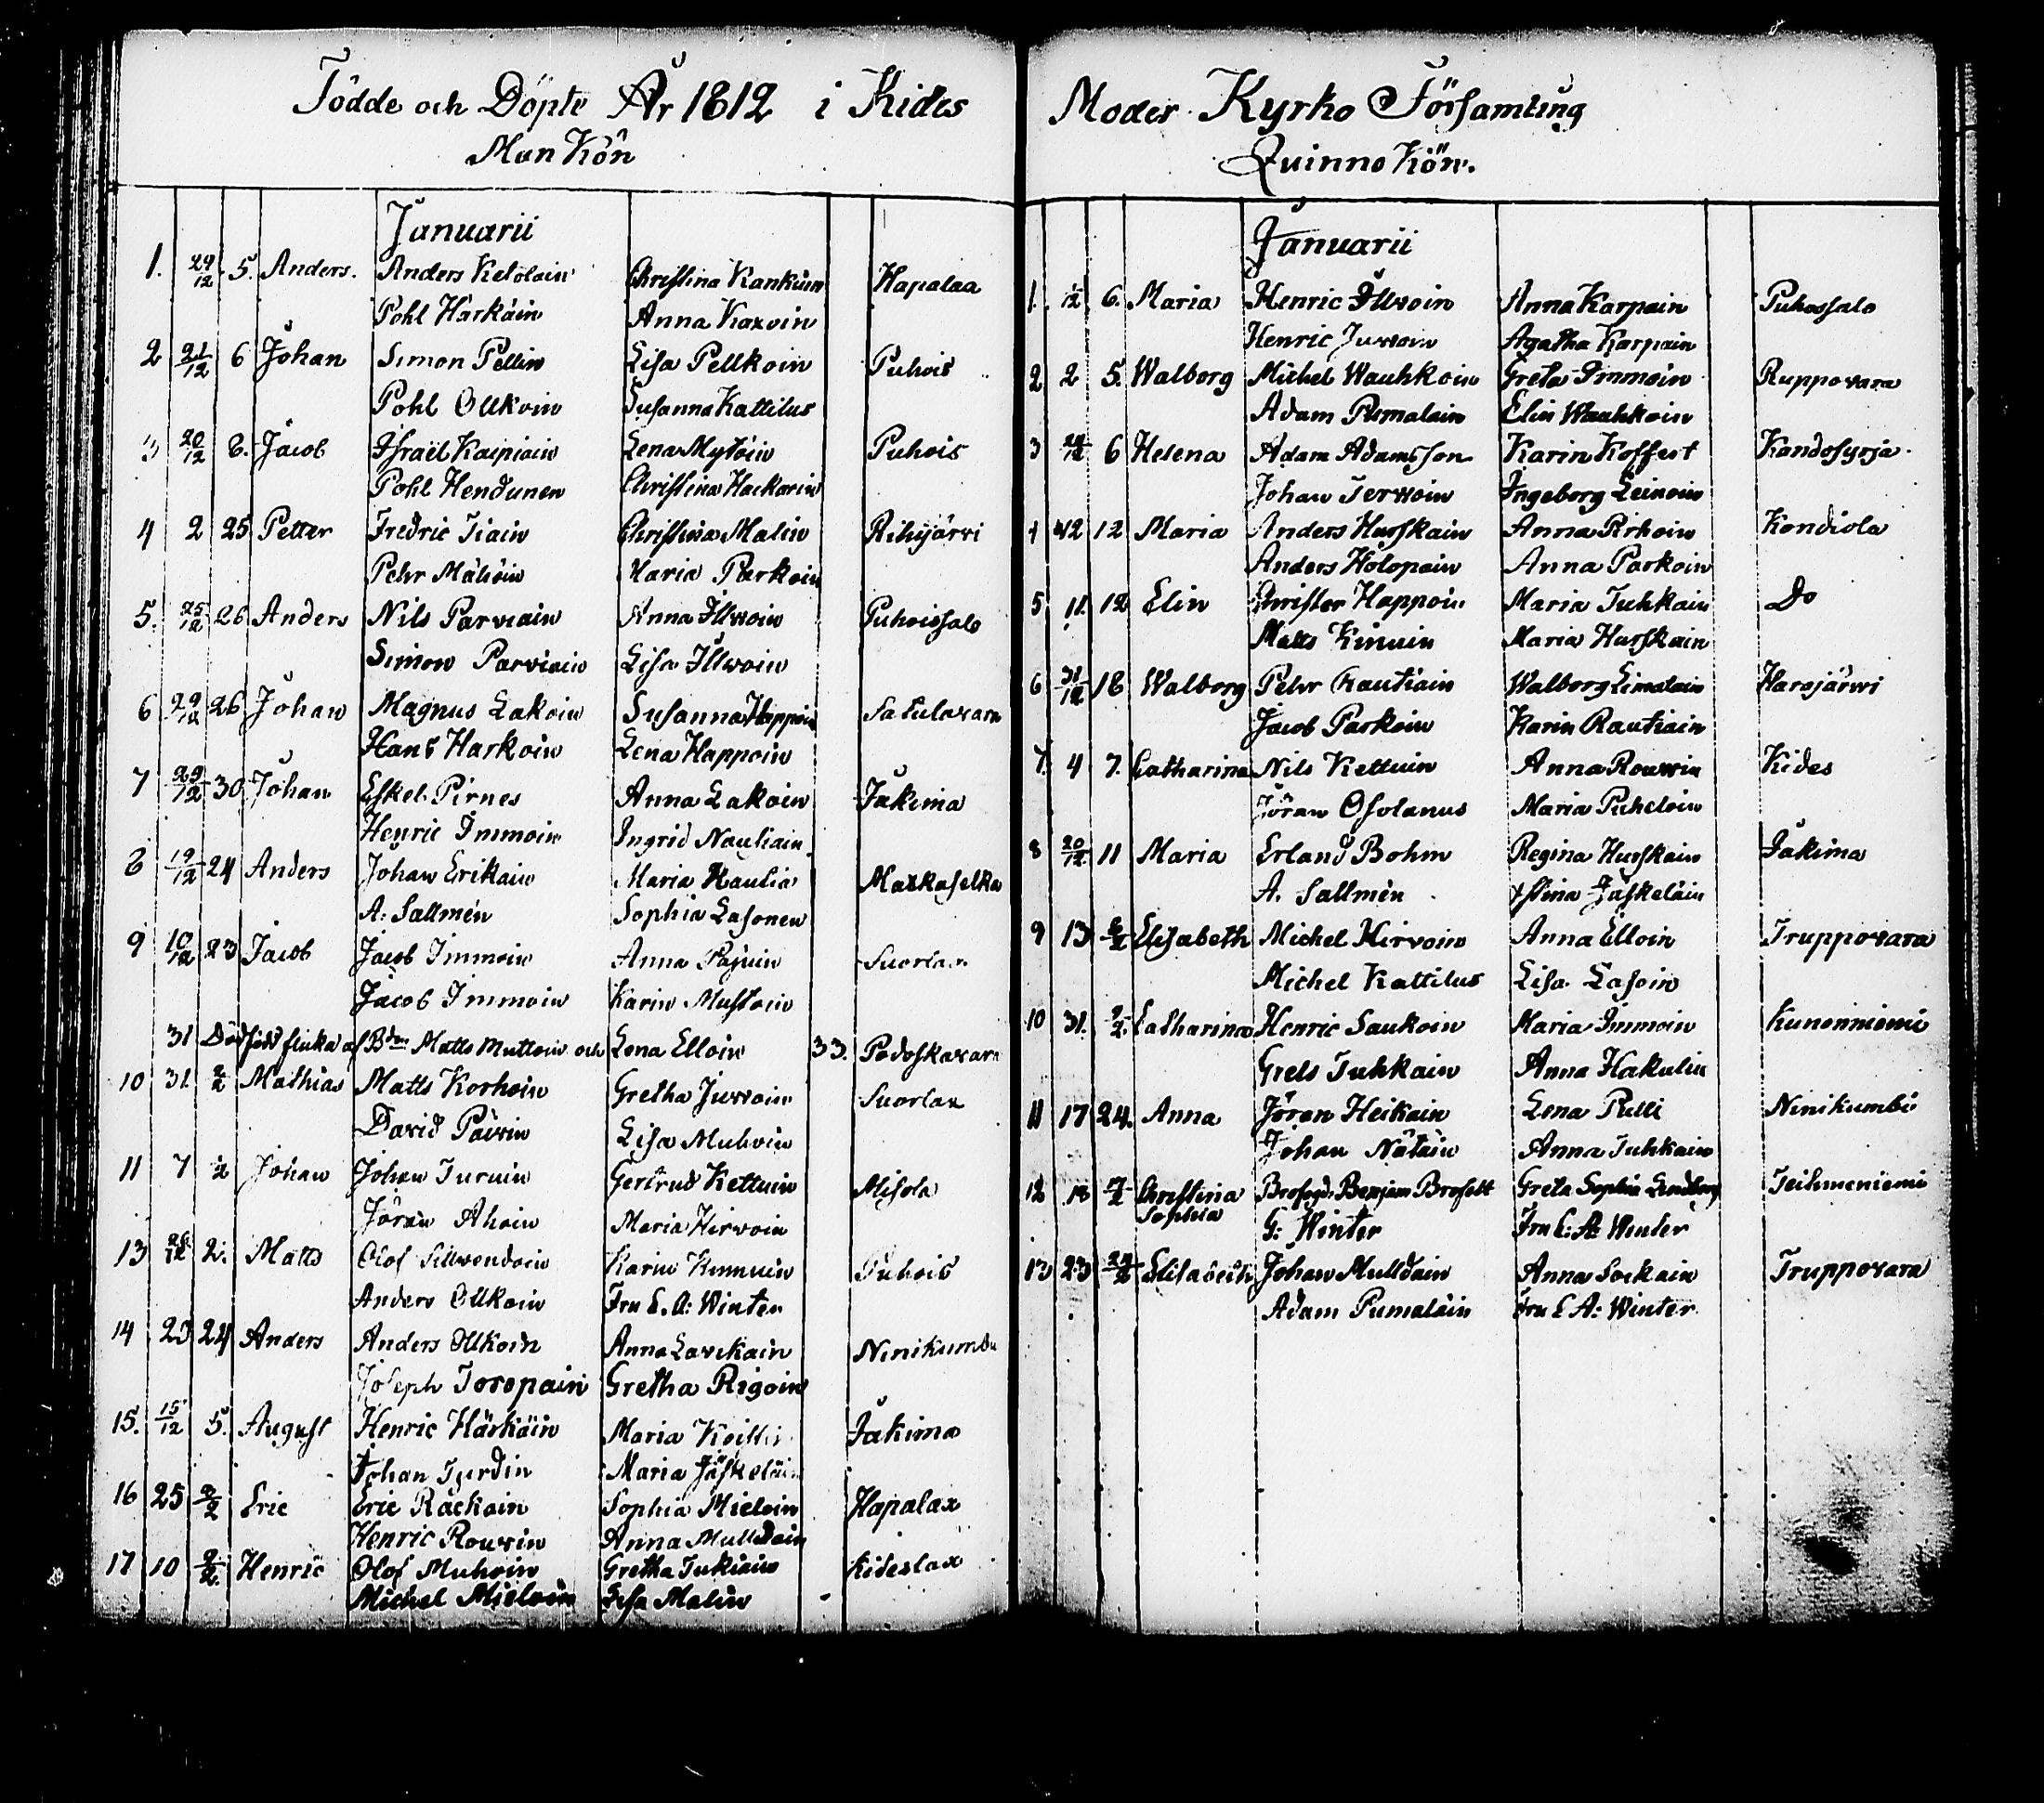 Födde och Döpte År 1812 i Kides
Man Kön
Januarii
1. 29/12 5. Anders. Anders Ketolain Christina Kankuin Hapalax
Pohl Härkäin Anna Koxoin
2 21/12 6 Johan Simon Pellin Lisa Pellkoin Puhois
Pohl Ollkoin Susanna Kattilus
3 20/12 6. Jacob Israël Kaipiain Lena Mytöin Puhois
Pohl Hendunen Christina Hackarin
4 2 25 Petter Fredric Tiain Christina Malin Rihijärvi
Pehr Mähöin Maria Parkoin
5. 25/12 26 Anders Nils Parviain Anna Illwoin Puhoissalo
Simon Parviain Lisa Illwoin
6 29/12 26 Johan Magnus Lakoin Susanna Happoin Satulavara
Hans Harkoin Lena Happoin
7 29/12 30 Johan Eskel Pirnes Anna Lakoin Jakima
Henric Immoin Ingrid Nauliain
8 19/12 24 Anders Johan Erikain Maria Raulia Matkaselka
A. Sallmén Sophia Lasonen
9 10/12 23 Jacob Jacob Immoin Anna Päjuin Suorlax
Jacob Immoin Karin Mustoin
31 Död född flicka af Bdn Matts Muttoin och Lena Elloin 33. Podoskavara
10 31. 2/2 Mathias Matts Korhoin Gretha Jussoin Suorlax
David Päivin Lisa Muhoin
11 7 2 Johan Johan Turuin Gertrud Kettuin Misola
Jöran Ahoin Maria Hirvoin
13 28/12 2. Matts Olof Sillvendoin Karin Kinnuin Puhois
Anders Ollkoin Fru E. A: Winter
14 23 24 Anders Anders Ollkoin Anna Lavikain Ninikumbu
Joseph Toropain Gretha Rigoin
15. 15/12 5. August Henric Härkäin Maria Jakima
Johan Tyrdin Maria Jäskeläin
16 25 2/2 Eric Eric Räckoin Sophia Mieloin Hapalax
Henric Rouvin Anna Mulldain
17 10 2/2. Henric Olof Muhoin Gretha Tukiain Kideslax
Michel Mieloin Lisa Malin
Moder Kyrko Församling
Quinno Kön.
Januarii
1. 1/12 6. Maria Henric Illwoin Anna Karpain Puhossalo
Henric Jussoin Agatha Karpain
2 2 5. Walborg Michel Wauhkoin Greta Immoin Ruppovara
Adam Pumalain Elin Wauhkoin
3 24/12 6 Helena Adam Adamsson Karin Koffert Kandosyrja
Johan Terwoin Ingeborg Leinoin
4 12 12 Maria Anders Hurskain Anna Pirhoin Kondiola
Anders Holopain Anna Parkoin
5 11. 12 Elin Christer Happoin Maria Tuhkain Do
Matts Kinuin Maria Hurskain
6 31/12 18 Walborg Pehr Rautiain Walborg Limatain Harajärwi
Jacob Parkoin Karin Rautiain
7. 4 7. Catharina Nils Kettuin Anna Rouvin Kides
Jöran Osolanus Maria Puheloin
8 20/12 11 Maria Erland Bohm Regina Hurskain Jakima
A. Sallmén Stina Jäskeläin
9 13 6/2 Elisabeth Michel Hirvoin Anna Elloin Truppovara
Michel Kattilus Lisa Lasoin
10 31. 2/2. Catharina Henric Saukoin Maria Immoin Kunonniemi
Grels Tuhkain Anna Hakulin
11 17 24. Anna Jöran Heikain Lena Pulli Ninikumbu
Johan Nätäin Anna Tuhkain
12 18 2/2 Christina Benjam Brofelt Greta Sophia Lundberg Teihmeniemi
Sophia G: Winter Fru E: A: Winter
13 23 24/2 Elisabeth Johan Mulldain Anna Sockain Truppovara
Adam Pumalain Fru E A: Winter